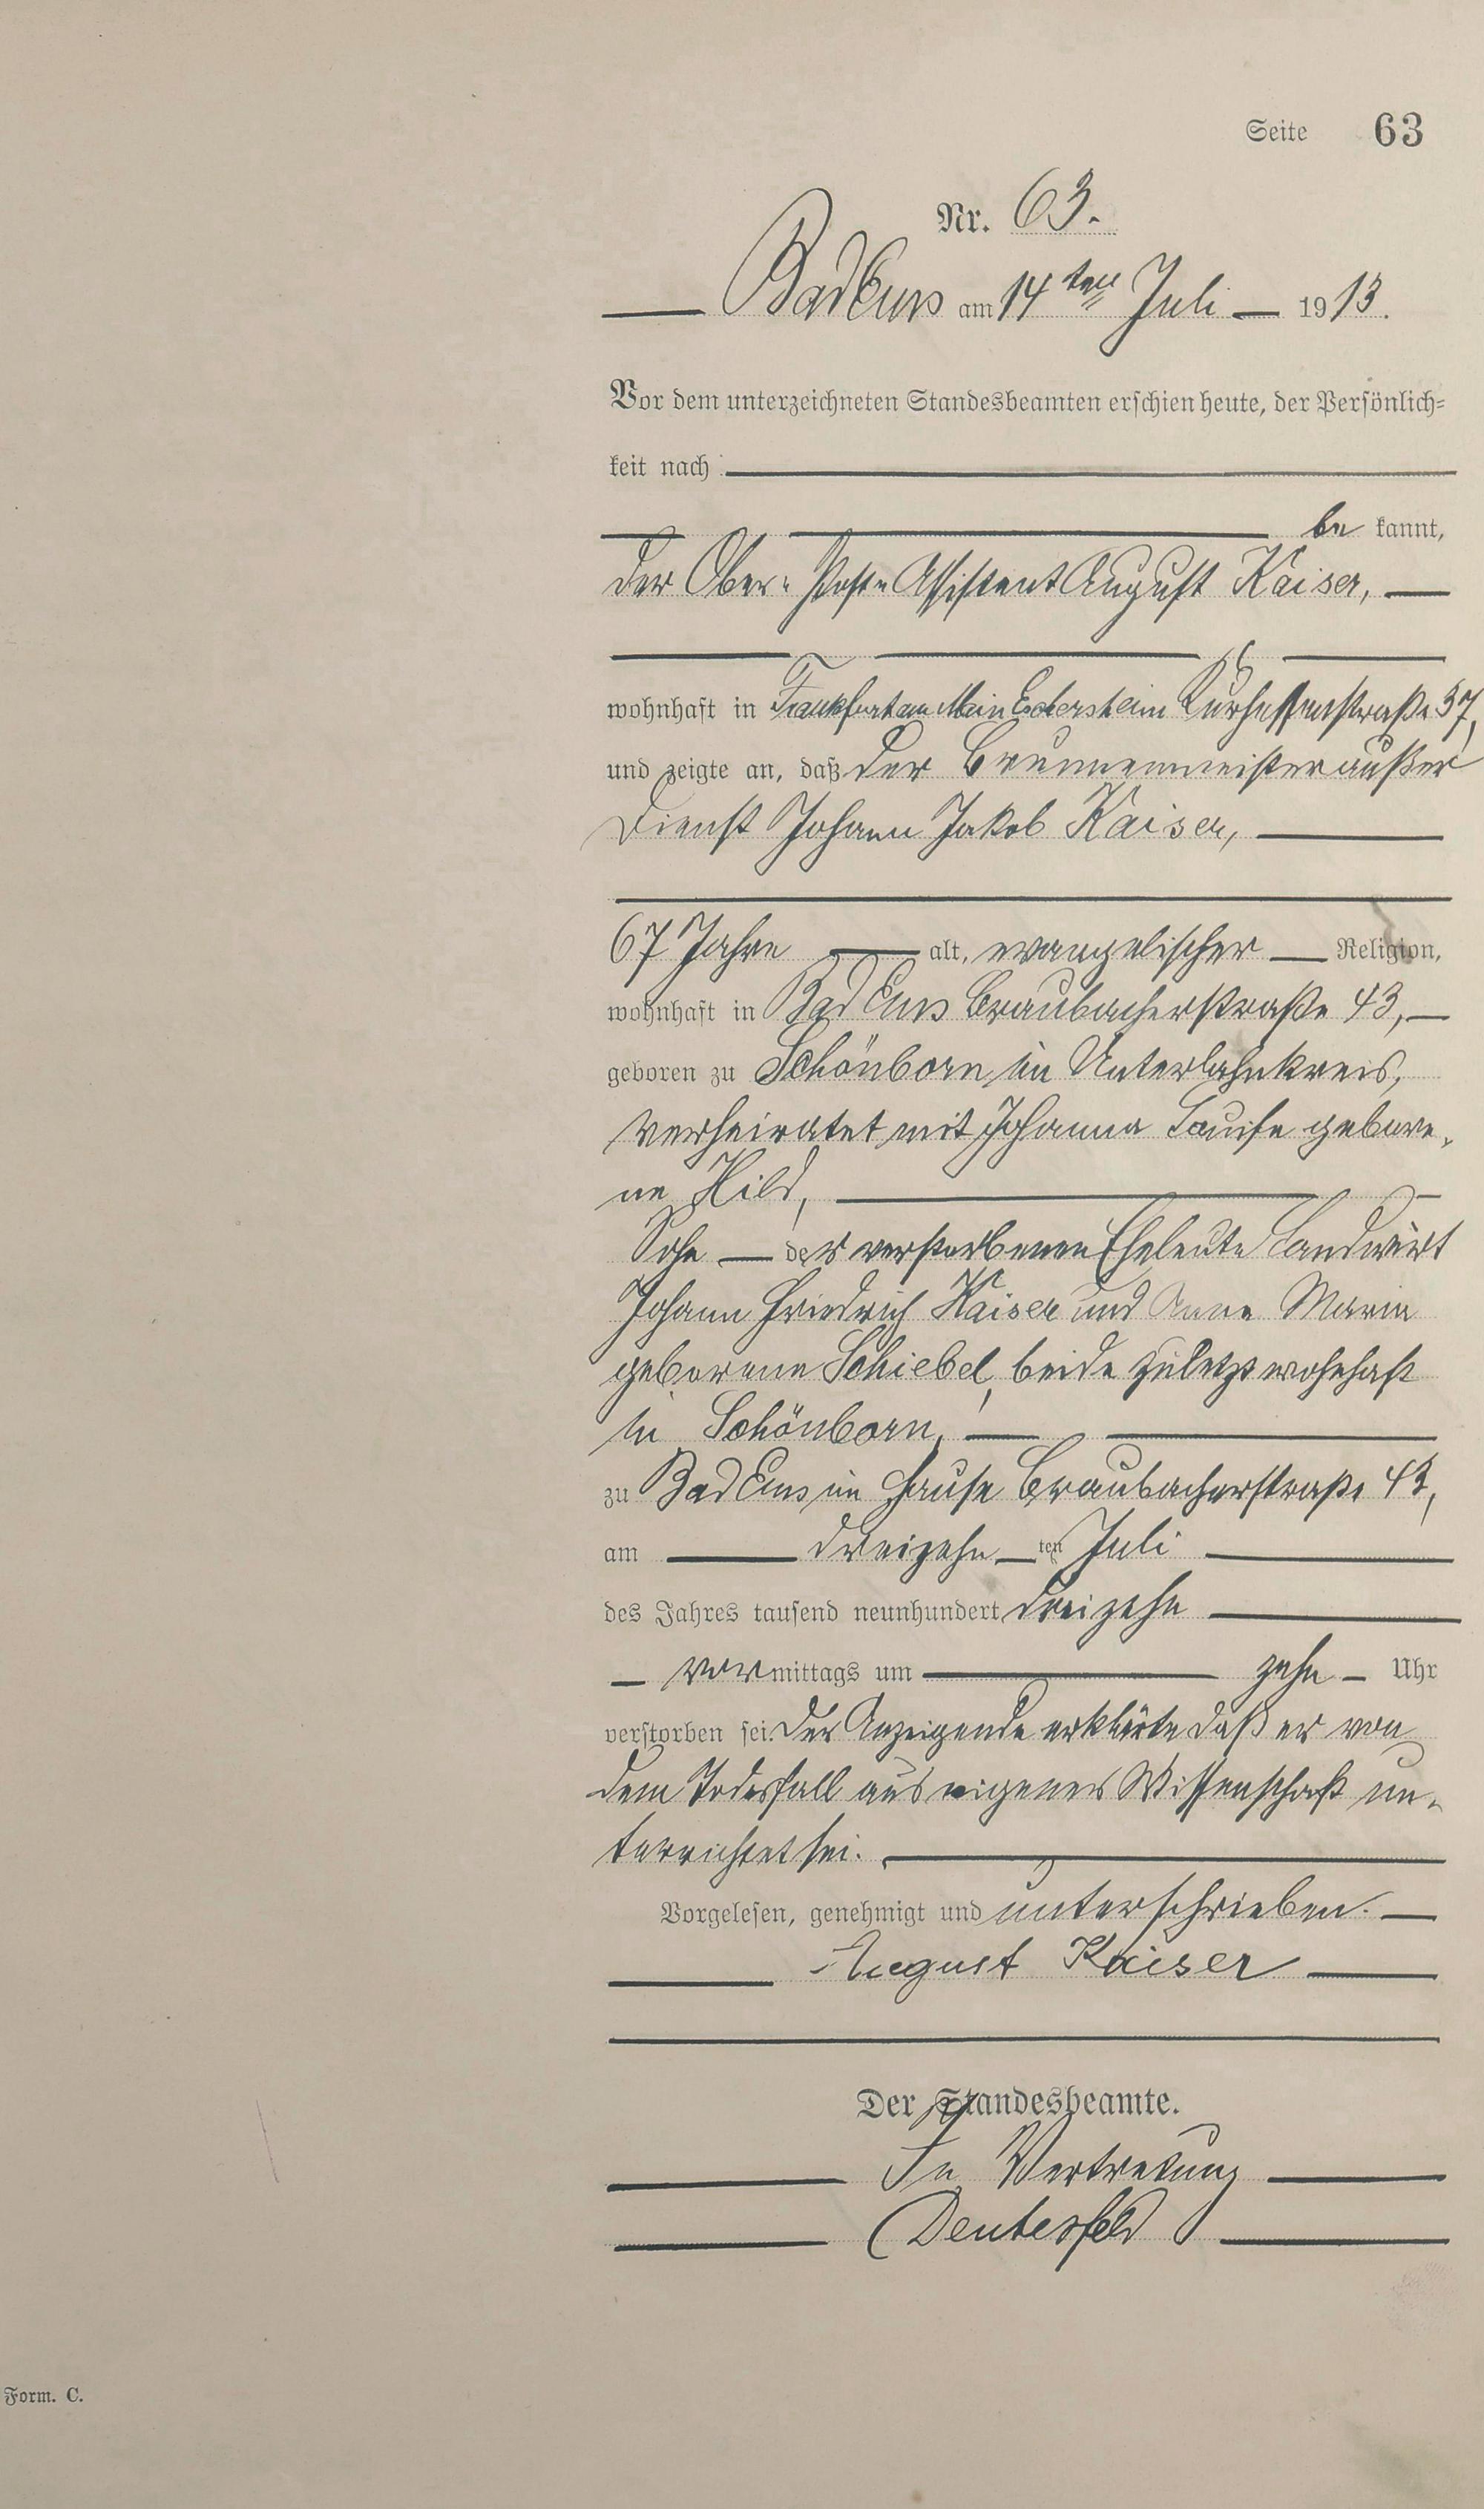 Seite 63
Nr. 63.
Bad Ems am 14ten Juli 1913.
Vor dem unterzeichneten Standesbeamten erschien heute, der Persönlich=
keit nach
be kannt,
der Ober-Post-Assistent August Kaiser,
wohnhaft in Frankfurt am Main Eckersheim Kurhessenstraße 37,
und zeigte an, daß der Brunnenmeister außer
Dienst Johann Jakob Kaiser,
67 Jahre alt, evangelischer Religion,
wohnhaft in Bad Ems Braubacherstraße 43,
geboren zu Schönborn im Unterlahnkreis,
verheiratet mit Johanna Louise gebore-
ne Hild,
Sohn der verstorbenen Eheleute Landwirt
Johann Friedrich Kaiser und Anna Maria
geborene Schiebel, beide zuletzt wohnhaft
in Schönborn,
zu Bad Ems im Hause Braubacherstraße 43,
am dreizehn ten Juli
des Jahres tausend neunhundert dreizehn
vor mittags um zehn Uhr
verstorben sei. Der Anzeigende erklärte daß er von
dem Todesfall aus eigener Wissenschaft un-
terrichtet sei.
Vorgelesen, genehmigt und unterschrieben.
August Kaiser
Der Standesbeamte.
In Vertretung
Deutesfeld
Form. C.